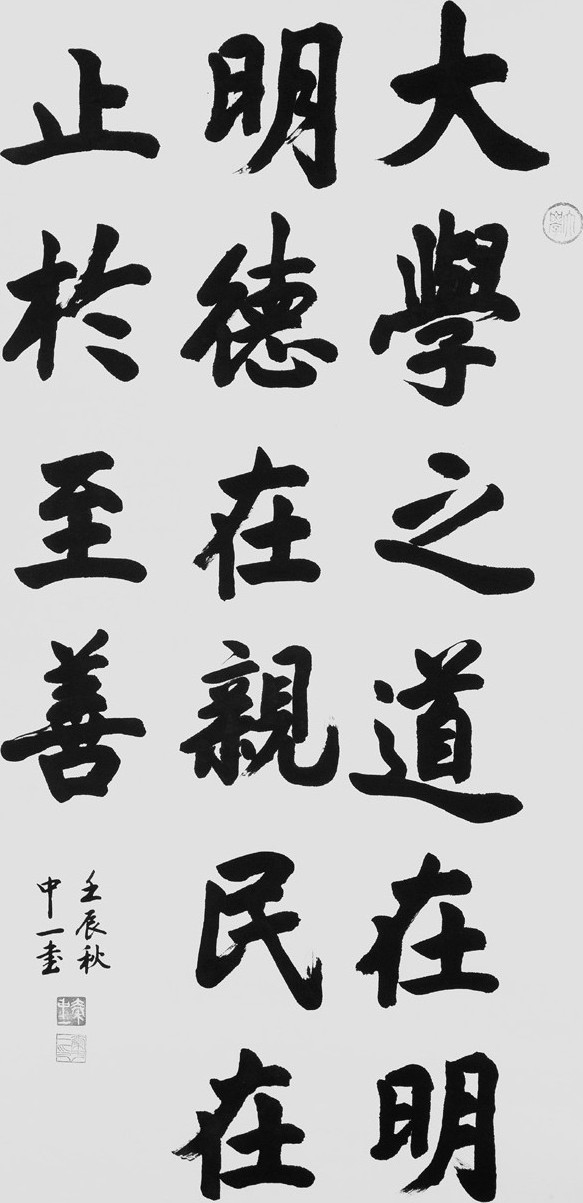 大學之道在明
明德在親民在
止於至善
壬辰秋
中一書